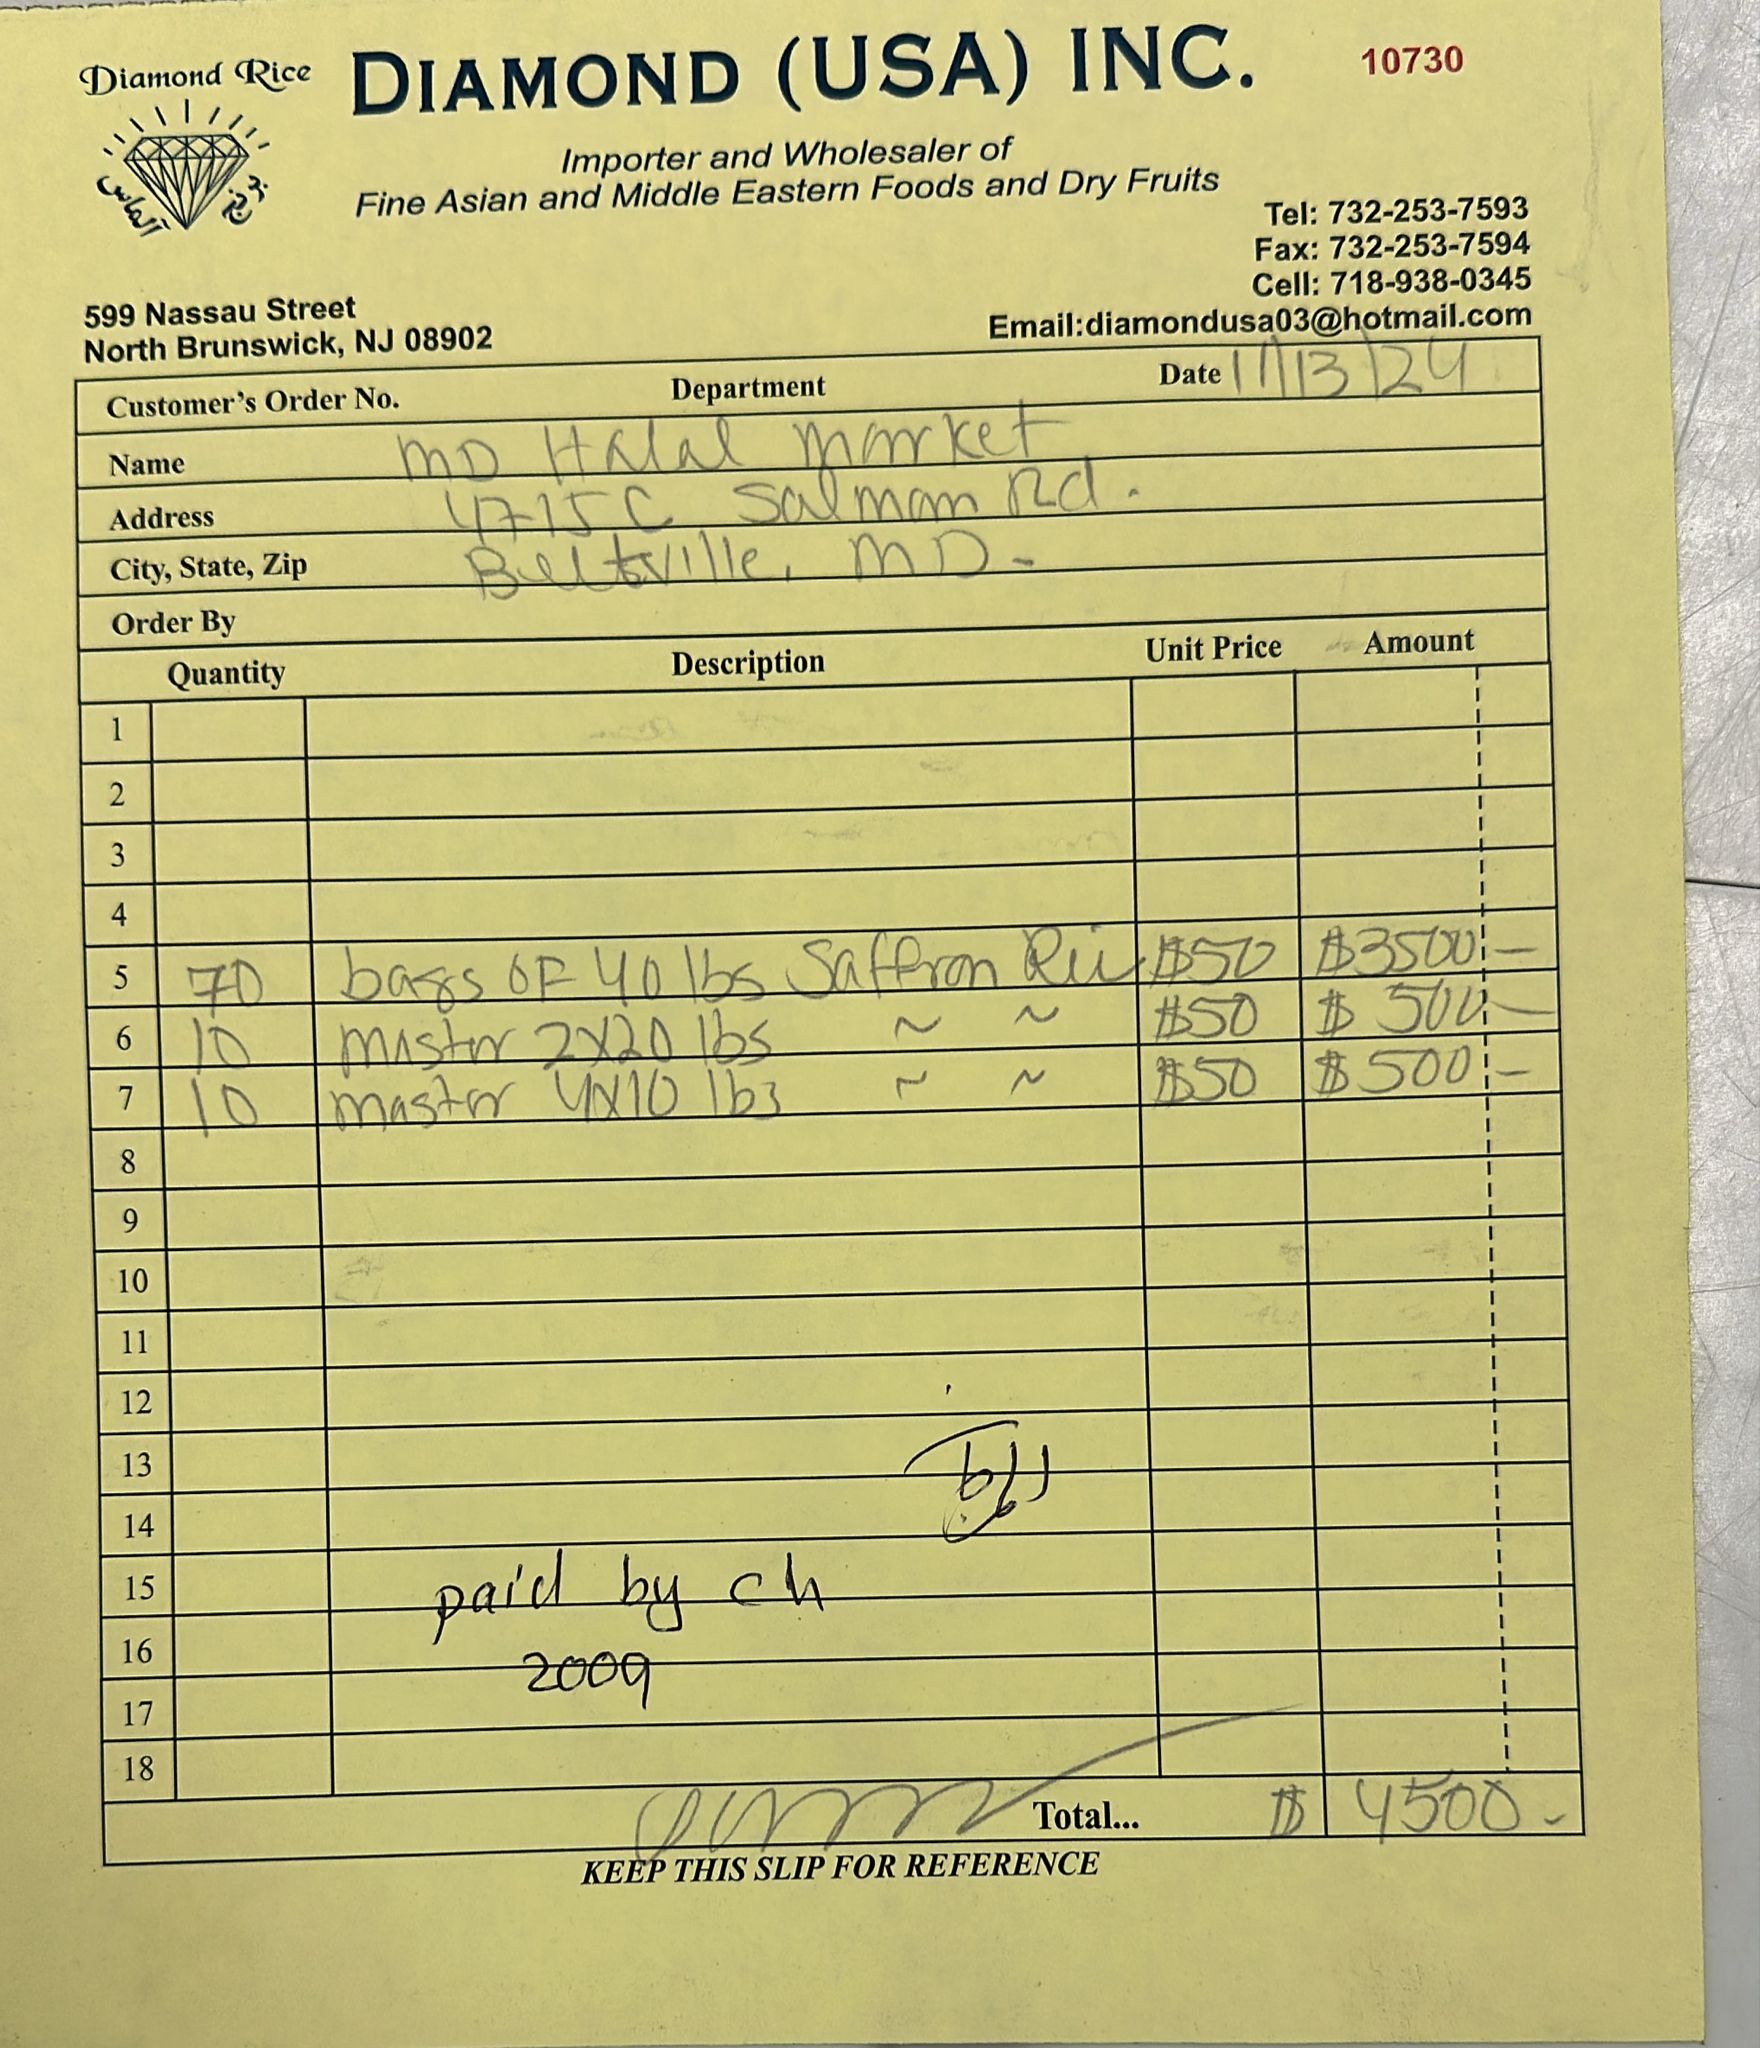 Diamond Rice
DIAMOND (USA) INC.
10730
الماس
Importer and Wholesaler of
Fine Asian and Middle Eastern Foods and Dry Fruits
Tel: 732-253-7593
Fax: 732-253-7594
Cell: 718-938-0345
599 Nassau Street
North Brunswick, NJ 08902
Email:diamondusa03@hotmail.com
Customer's Order No. Department Date 11/13/24
Name MD Halal Market
Address 4715 C Salman Rd.
City, State, Zip Beltsville, MD -
Order By
Quantity Description Unit Price Amount
1
2
3
4
5 70 bags OF 40 lbs Saffron Ric $50 $3500 -
6 10 Master 2x20 lbs ~ ~ $50 $ 500 -
7 10 Master 4x10 lbs ~ ~ $50 $ 500 -
8
9
10
11
12
13
14
15 paid by ch
16 2009
17
18
Total... $ 4500 -
KEEP THIS SLIP FOR REFERENCE